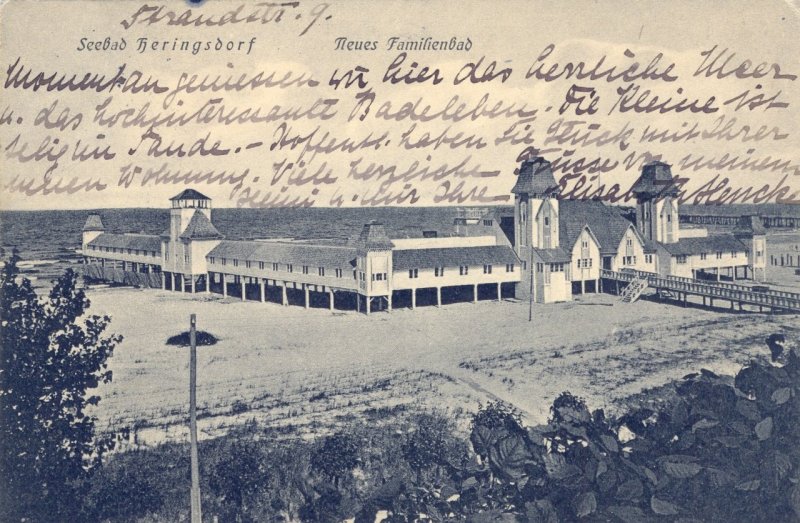 Strandstr. 9.
Seebad Heringsdorf Neues Familienbad
Momentan geniessen wir hier das herrliche Meer
u. das hochinteressante Badeleben. Die Kleine ist
selig im Sande. – Hoffentl. haben Sie Glück mit Ihrer
neuen Wohnung. Viele herzliche Grüsse von meinem
Heini u. auch für Ihre Elisabeth